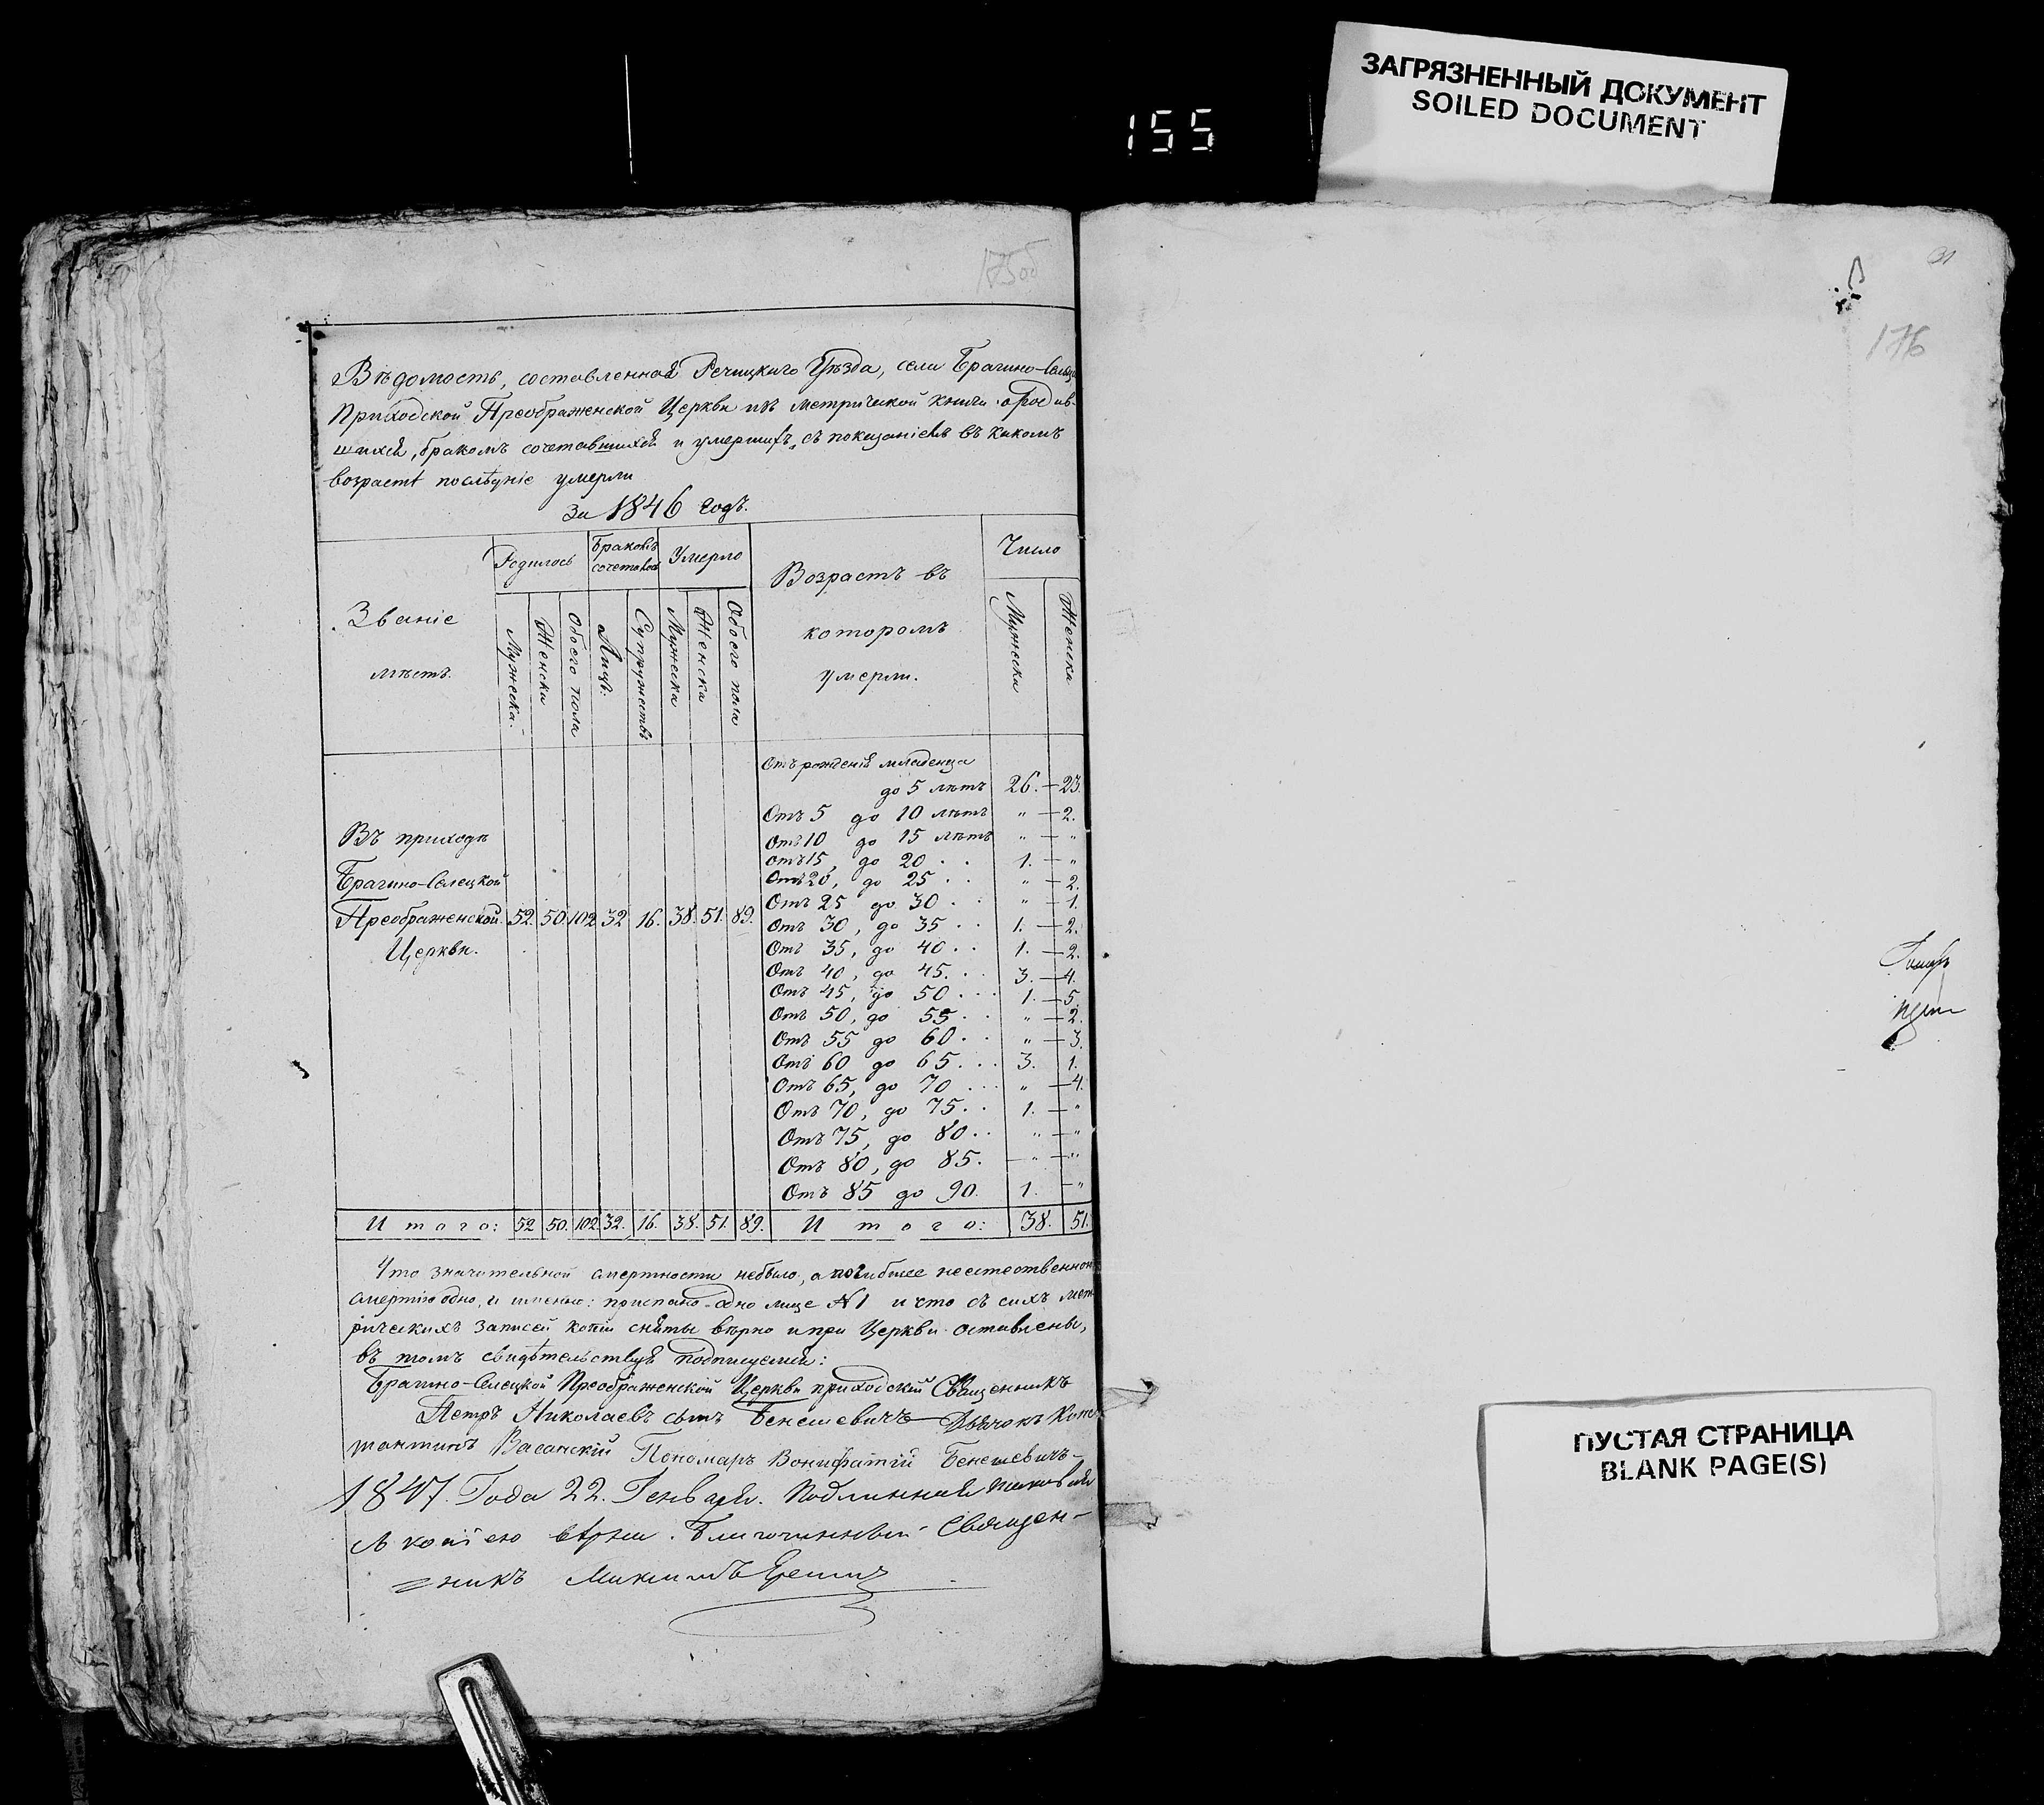 ЗАГРЯЗНЕННЫЙ ДОКУМЕНТ
SOILED DOCUMENT
155
175об
176
Вѣдомость, составленная Речицкаго Уѣзда, села Брагино-Сельца
Приходской Преображенской Церкви изъ метрической книги о родив-
шихся, бракомъ сочетавшихся и умершихъ, съ показаніемъ въ какомъ
возрастѣ послѣдніе умерли
За 1846 годъ.
Званіе мѣстъ. Родилось Бракомъ сочеталось Умерло Возрастъ въ которомъ умерли. Число
Мужеска. Женска Обоего пола Лицъ. Супружествъ Мужеска Женска Обоего пола Мужеска Женска
Отъ рожденія младенца
до 5 лѣтъ 26. — 23.
Отъ 5 до 10 лѣтъ " — 2.
Отъ 10 до 15 лѣтъ " — "
Отъ 15, до 20 . . 1. — "
Отъ 20, до 25 . . " — 2.
Отъ 25 до 30 . . " — 1.
Отъ 30, до 35 . . 1. — 2.
Отъ 35, до 40 . . 1. — 2.
Отъ 40, до 45. . . 3. — 4.
Отъ 45, до 50 . . . 1. — 5.
Отъ 50, до 55 . . " — 2.
Отъ 55 до 60 . . " — 3.
Отъ 60 до 65 . . . 3. 1.
Отъ 65, до 70 . . . " — 4.
Отъ 70, до 75 . . 1. — "
Отъ 75, до 80 . . " — "
Отъ 80, до 85. — " — "
Отъ 85 до 90. 1. — "
Въ приходѣ
Брагино-Селецкой
Преображенской 52. 50. 102 32 16. 38. 51. 89.
Церкви.
Итого: 52 50. 102. 32. 16. 38. 51. 89. Итого: 38. 51.
Что значительной смертности небыло, а погибшее неестественною
смертію одно, и именно: приспано одно лице № 1 и что съ сихъ мет-
рическихъ записей копіи сняты вѣрно и при Церкви оставлены,
въ томъ свидѣтельствуя подписуемся:
Брагино-Селецкой Преображенской Церкви приходскій Священникъ
Петръ Николаевъ сынъ Бенешевичъ Дьячокъ Конс-
тантинъ Пономарь Вонифатій Бенешевичъ
1847. Года 22. Генваря. Подлинная таковая
съ копіею вѣрна. Благочинный Священ-
=никъ Максимъ
ПУСТАЯ СТРАНИЦА
BLANK PAGE(S)